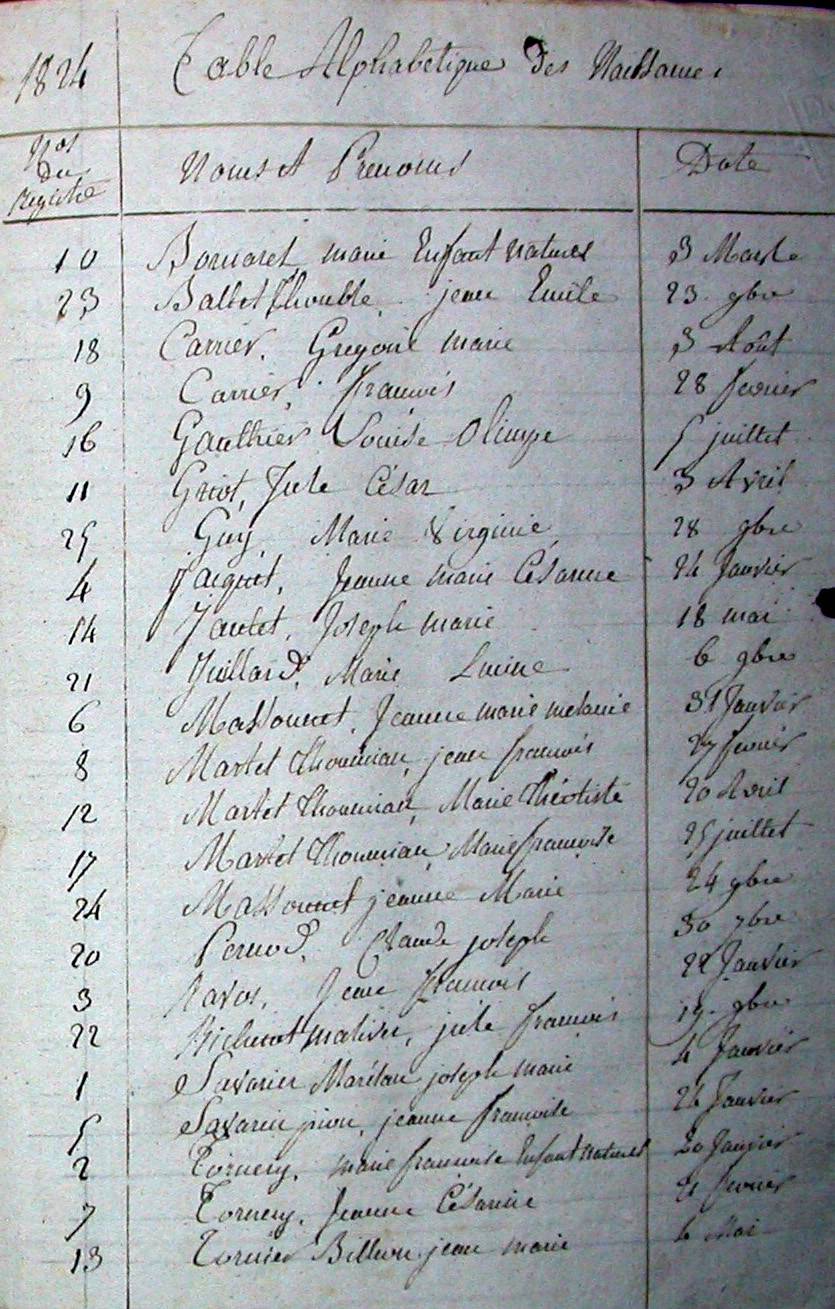 1824 Table Alphabetique des Naissances
Nos du Registre Noms et Prenoms Date
10 Bornaret marie Enfant naturel 3 Mars
23 Ballet Thouble jean Emile 23 9bre
18 Carrier, Gregoire marie 3 Août
9 Carrier, francois 28 fevrier
16 Gaulthier Louise Olimpe 5 juillet
11 Griot, Jule César 3 Avril
25 Guy Marie Virginie 28 9bre
4 Jaiquet, Jeanne marie Césarine 24 Janvier
14 Jantet, Joseph marie 18 mai
21 Juillard, Marie 6 9bre
6 Massonnet, Jeanne marie melanie 31 Janvier
8 Martet Thoumian, jean francois 27 fevrier
12 Martet Thoumian, Marie Théotiste 20 Avril
17 Martet Thoumian Marie francoise 25 juillet
24 Massonnet jeanne Marie 24 9bre
20 Pernod, Claude joseph 30 7bre
3 Ravos, Jean francois 22 Janvier
22 jule francois 19 9bre
1 Savarin joseph marie 4 Janvier
5 Savarin pion, jeanne francoise 26 Janvier
2 Tornery, marie francoise Enfant naturel 20 Janvier
7 Tornery, Jeanne Césarine fevrier
13 Tornier Billion jean marie 6 Mai